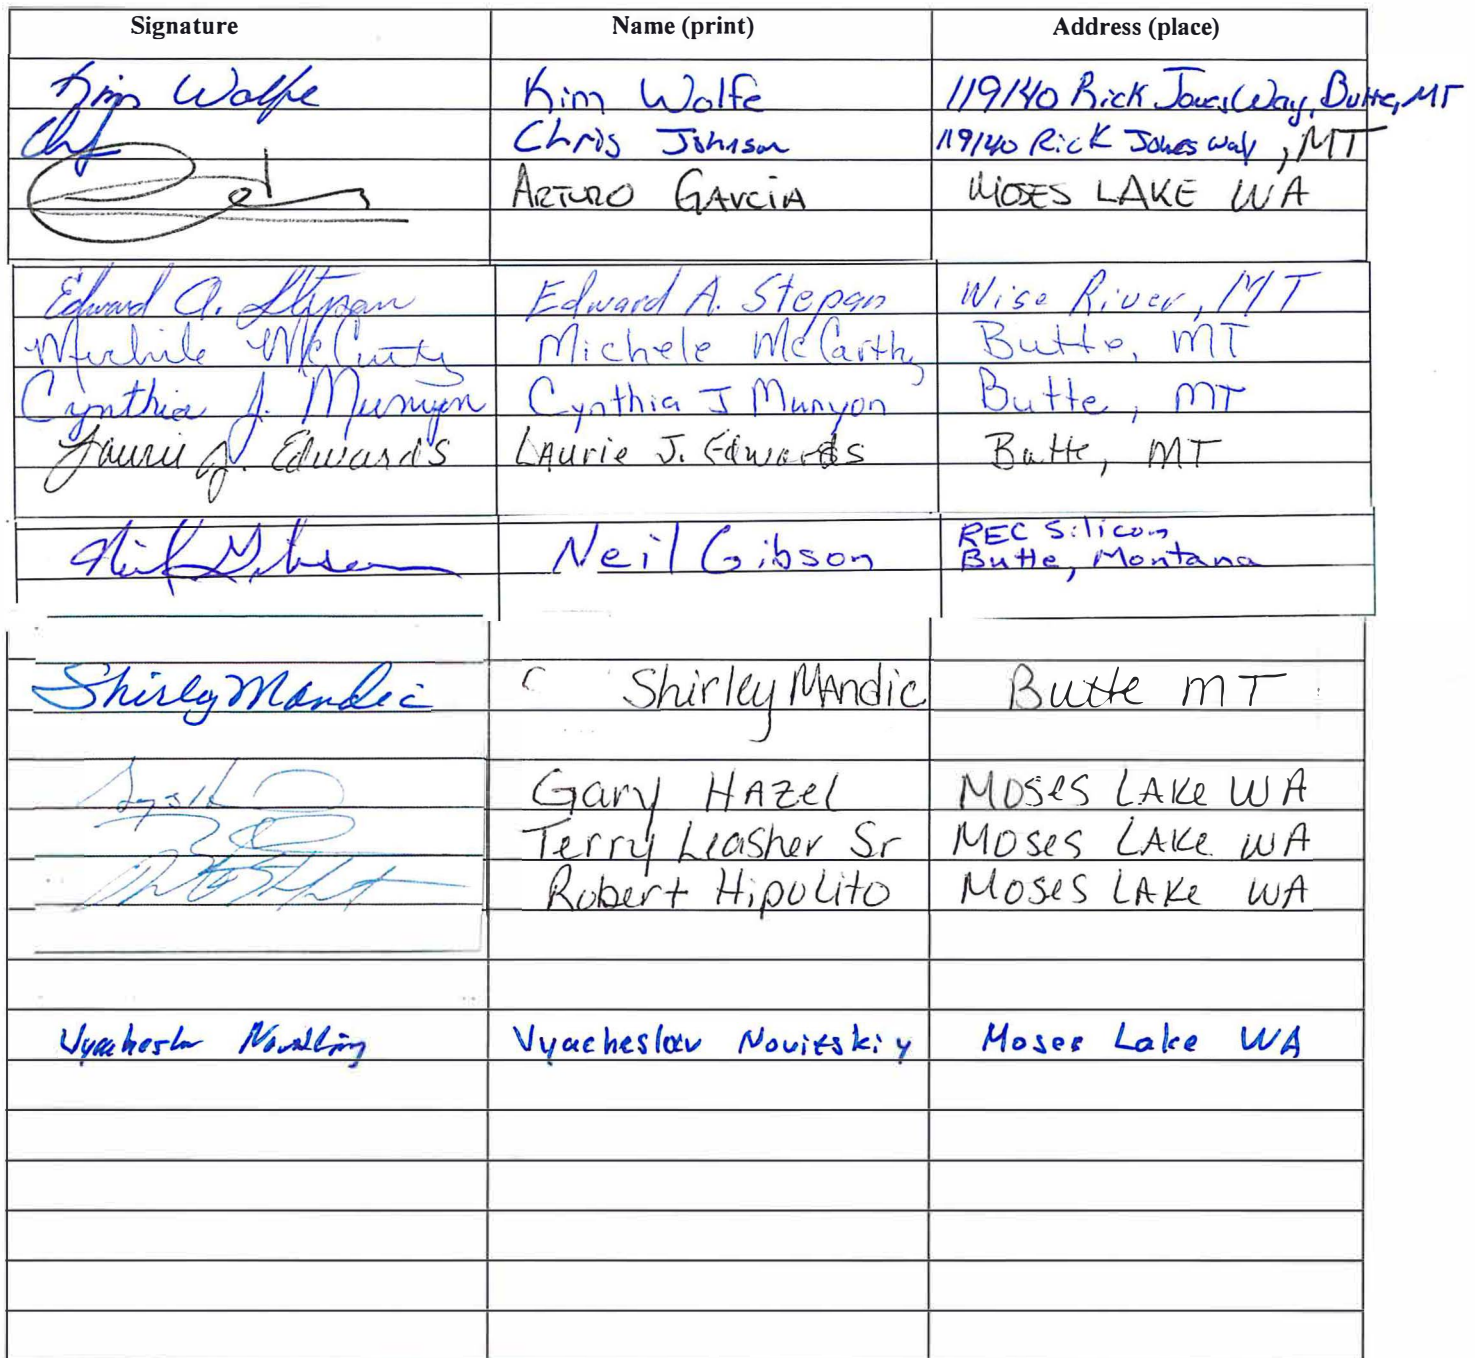 Signature Name (print) Address (place)
Kim Wolfe Kim Wolfe 119140 Rick Jones Way, Butte, MT
Chris Johnson 119140 Rick Jones Way, MT
ARTURO GARCIA MOSES LAKE WA
Edward A. Stepan Edward A. Stepan Wise River, MT
Michele McCarthy Michele McCarthy Butte, MT
Cynthia J. Munyon Cynthia J Munyon Butte, MT
Laurie J. Edwards LAurie J. Edwards Butte, MT
Neil Gibson Neil Gibson REC Silicon
Butte, Montana
Shirley Mandic Shirley MAndic Butte MT
Gary HAZel MOSes LAKe WA
Terry Leasher Sr MOSes LAKe WA
Robert HipoLito MOSes LAKe WA
Vyacheslav Novitskiy Moses Lake WA